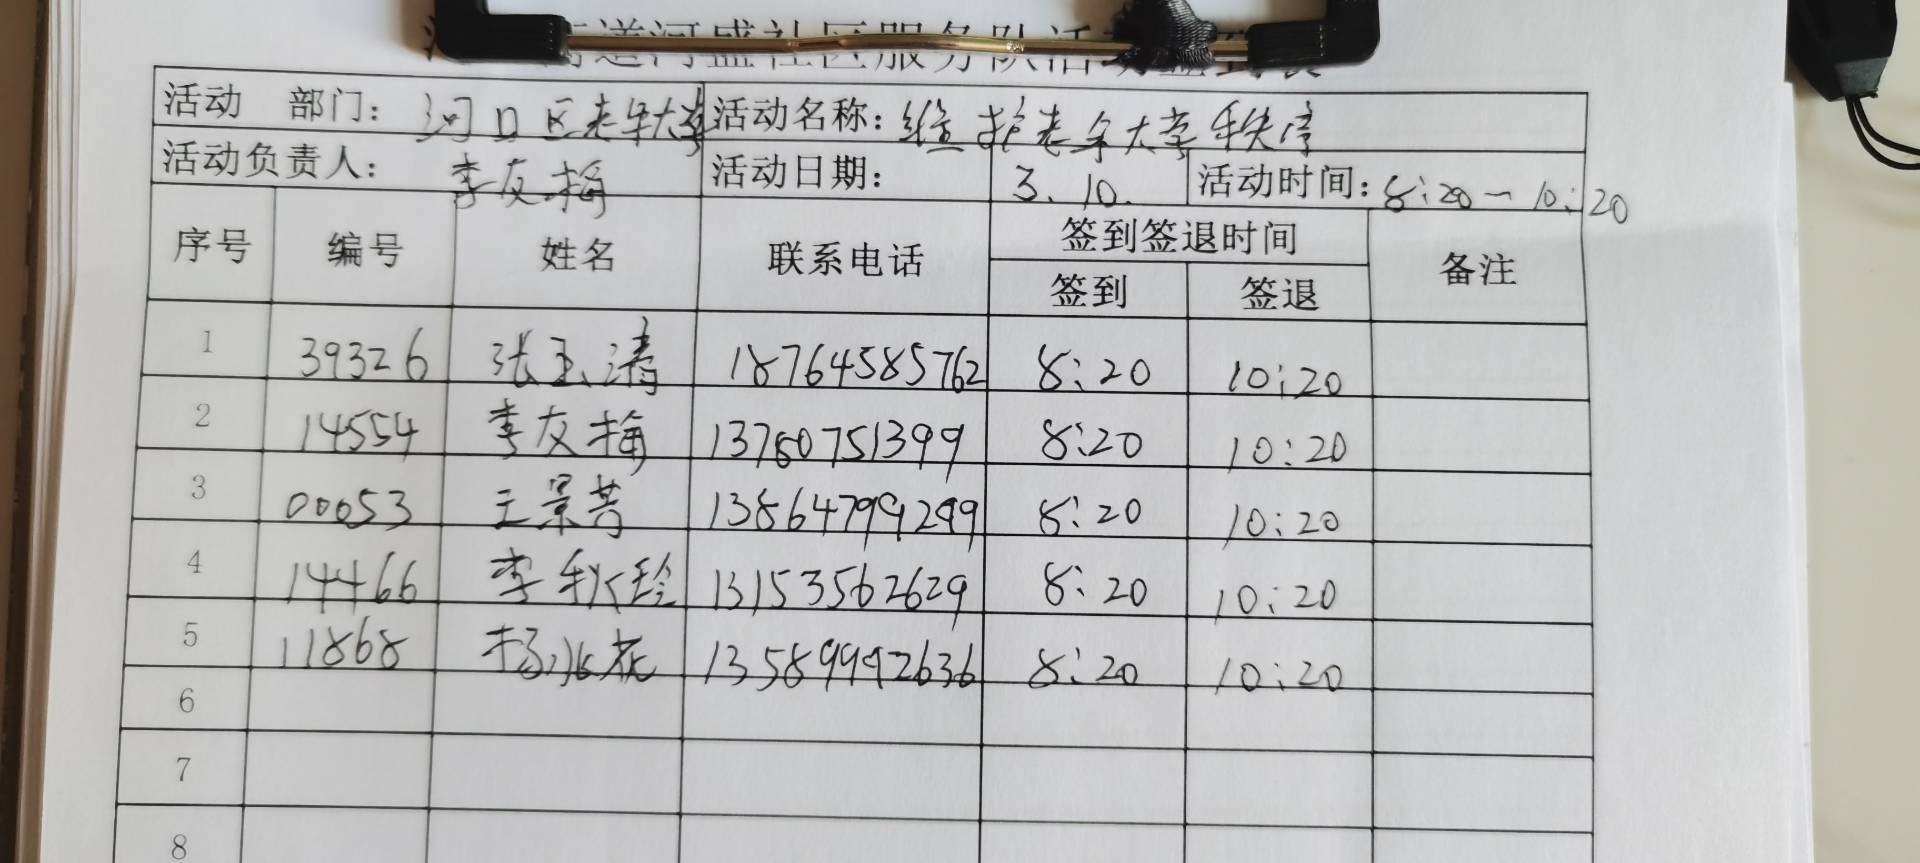 街道河盛社区服务队活动签到表
活动 部门: 河口区老年大学 活动名称: 维护老年大学秩序
活动负责人: 李友梅 活动日期: 3.10. 活动时间: 8:20-10:20
序号 编号 姓名 联系电话 签到签退时间 备注
签到 签退
1 39326 张玉清 18764585762 8:20 10:20
2 14554 李友梅 13760751399 8:20 10:20
3 00053 王景芳 13864799299 8:20 10:20
4 14466 李秋玲 13153562629 8:20 10:20
5 11868 杨冰花 13589992636 8:20 10:20
6
7
8